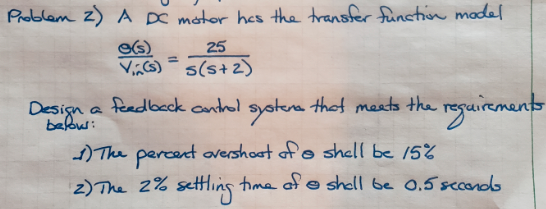 Problem 2) A DC motor has the transfer function model
Θ(s)/Vin(s) = 25/s(s+2)
Design a feedback control system that meets the requirements
below:
1) The percent overshoot of Θ shall be 15%
2) The 2% settling time of Θ shall be 0.5 seconds